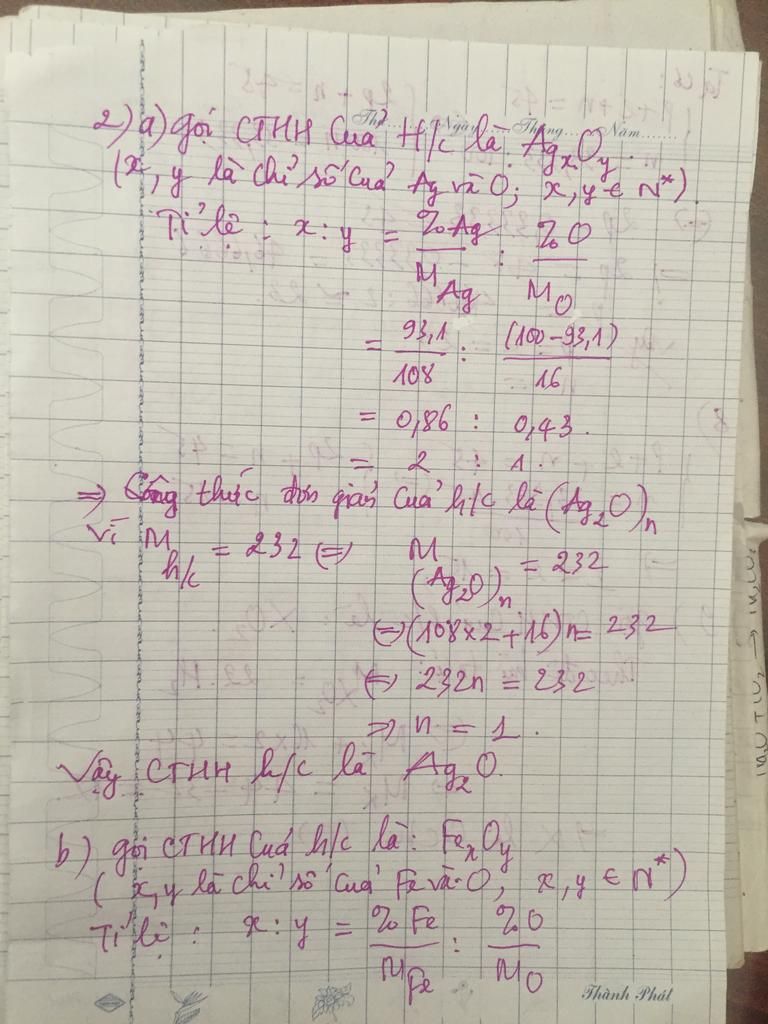 Thứ.......Ngày.......Tháng.......Năm.......
2) a) gọi CTHH của H/c là: AgxOy.
(x, y là chỉ số của Ag và O; x, y ∈ N*)
Tỉ lệ : x : y = %Ag/M_Ag : %O/M_O
= 93,1/108 : (100-93,1)/16
= 0,86 : 0,43.
= 2 : 1.
⇒ Công thức đơn giản của h/c là (Ag₂O)n
Vì M h/c = 232 ⇔ M (Ag₂O)n = 232
⇔ (108×2+16)n = 232
⇔ 232n = 232
⇒ n = 1.
Vậy CTHH h/c là Ag₂O.
b) gọi CTHH của h/c là: FexOy
( x, y là chỉ số của Fe và O, x, y ∈ N*)
Tỉ lệ : x : y = %Fe/M_Fe : %O/M_O
Thành Phát